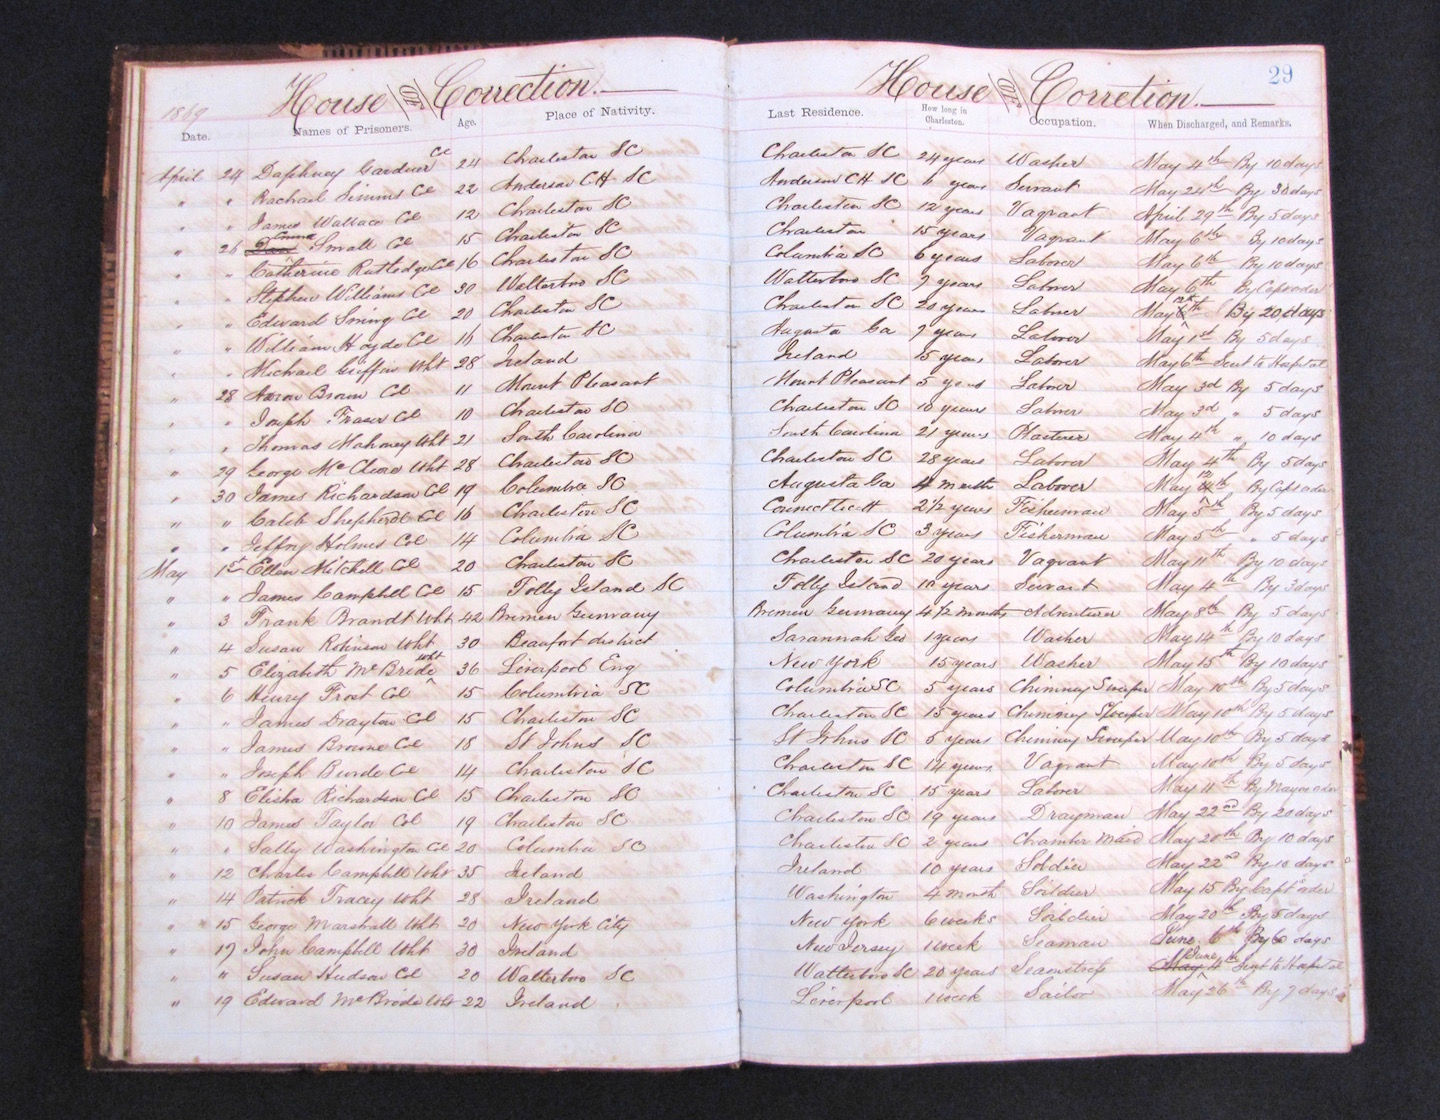 House of Correction.
1869
Date. Names of Prisoners. Age. Place of Nativity.
April 24 Daphney Gardner Col 24 Charleston SC
" " Rachael Simms Col 22 Anderson CH SC
" " James Wallace Col 12 Charleston SC
" 26 Emma Small Col 15 Charleston SC
" " Catherine Rutledge Col 16 Charleston SC
" " Stephen Williams Col 30 Walterboro SC
" " Edward Col 20 Charleston SC
" " William Col 16 Charleston SC
" " Michael Griffin Wht 28 Ireland
" 28 Aaron Brown Col 11 Mount Pleasant
" " Joseph Fraser Col 10 Charleston SC
" " Thomas Mahoney Wht 21 South Carolina
" 29 George Wht 28 Charleston SC
" 30 James Richardson Col 19 Columbia SC
" " Caleb Shepherd Col 16 Charleston SC
" " Jeffroy Holmes Col 14 Columbia SC
May 1st Ellen Mitchell Col 20 Charleston SC
" " James Campbell Col 15 Folly Island SC
" 3 Frank Brandt Wht 42 Bremen Germany
" 4 Susan Robinson Wht 30 Beaufort district
" 5 Elizabeth McBride wht 36 Liverpool Eng
" 6 Henry Frost Col 15 Columbia SC
" " James Drayton Col 15 Charleston SC
" " James Browne Col 18 St Johns SC
" " Joseph Col 14 Charleston SC
" 8 Elisha Richardson Col 15 Charleston SC
" 10 James Taylor Col 19 Charleston SC
" " Sally Washington Col 20 Columbia SC
" 12 Charles Campbell Wht 35 Ireland
" 14 Patrick Tracey Wht 28 Ireland
" 15 George Marshall Wht 20 New York City
" 17 John Campbell Wht 30 Ireland
" " Susan Hudson Col 20 Walterboro SC
" 19 Edward McBride Wht 22 Ireland
29
House of Corretion.
Last Residence. How long in Charleston. Occupation. When Discharged, and Remarks.
Charleston SC 24 years Washer May 4th By 10 days
Anderson CH SC " years Servant May 24th By 30 days
Charleston SC 12 years Vagrant April 29th By 5 days
Charleston 15 years Vagrant May 6th By 10 days
Columbia SC 6 years Laborer May 6th By 10 days
Walterboro SC 7 years Laborer May 6th By Capt order
Charleston SC 20 years Laborer May 12th By 20 days
Augusta Ga 7 years Laborer May 1st By 5 days
Ireland 15 years Laborer May 6th Sent to Hospital
Mount Pleasant 5 years Laborer May 3d By 5 days
Charleston SC 10 years Laborer May 3d " 5 days
South Carolina 21 years Plasterer May 4th " 10 days
Charleston SC 28 years Laborer May 4th By 5 days
Augusta Ga 4 month Laborer May 12th By Capt order
Connecticutt 2 1/2 years Fisherman May 5th By 5 days
Columbia SC 3 years Fisherman May 5th " 5 days
Charleston SC 20 years Vagrant May 11th By 10 days
Folly Island 10 years Servant May 4th By 3 days
Bremen Germany 4 1/2 months May 8th By 5 days
Savannah Geo 1 years Washer May 14th By 10 days
New York 15 years Washer May 15th By 10 days
Columbia SC 5 years Chimney Sweeper May 10th By 5 days
Charleston SC 15 years Chimney Sweeper May 10th By 5 days
St Johns SC 6 years Chimney Sweeper May 10th By 5 days
Charleston SC 14 years Vagrant May 10th By 5 days
Charleston SC 15 years Laborer May 11th By Mayor order
Charleston SC 19 years Drayman May 22nd By 20 days
Charleston SC 2 years Chamber Maid May 20th By 10 days
Ireland 10 years Soldier May 22nd By 10 days
Washington 4 month Soildier May 15 By Capt order
New York 6 weeks Soildier May 20th By 5 days
New Jersey 1 week Seaman June 6th By days
Walterboro SC 20 years Seamstress May June 4th Sent to Hospital
Liverpool 1 week Sailor May 26th By 7 days